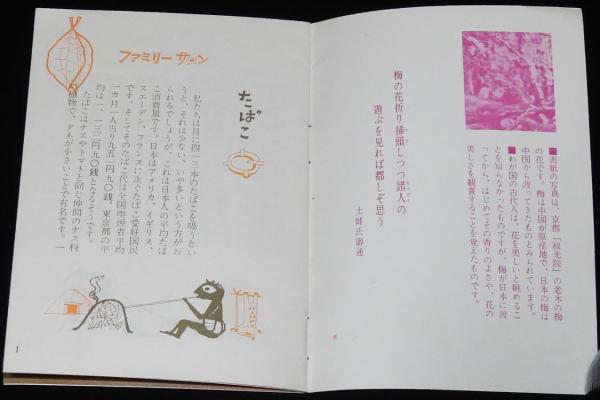 ■表紙の写真は、京都「寂光院」の老木の梅
の花です。梅は中国が原産地で、日本の梅は
中国から渡ってきたものとみられています。
■わが国の古代人は、花を美しいと眺めるこ
とを知らなかったものですが、梅が日本に渡
ってから、はじめてその香りのよさや、花の
美しさを観賞することを覚えたものです。
梅の花折り挿頭しつつ諸人の
遊ぶを見れば都しぞ思う
土師氏御通
ファミリー サロン
たばこ
私たちは月に四一三本のたばこを吸うとい
うと、それは少ない、いや多いという方がお
られるでしょうが、これは日本人の平均たば
こ消費量です。日本はアメリカ、イギリス、
スエーデン、フランスに次ぐたばこ愛好国民
です。そしてそのたばこ代は全国喫煙者平均
一ヵ月一人当り九五一円九〇銭、東京都の平
均は一、一三二円九〇銭となるそうです。
たばこはナスやトマトと同じ仲間のナス科
植物で、タネが小さいことで有名です。一
1